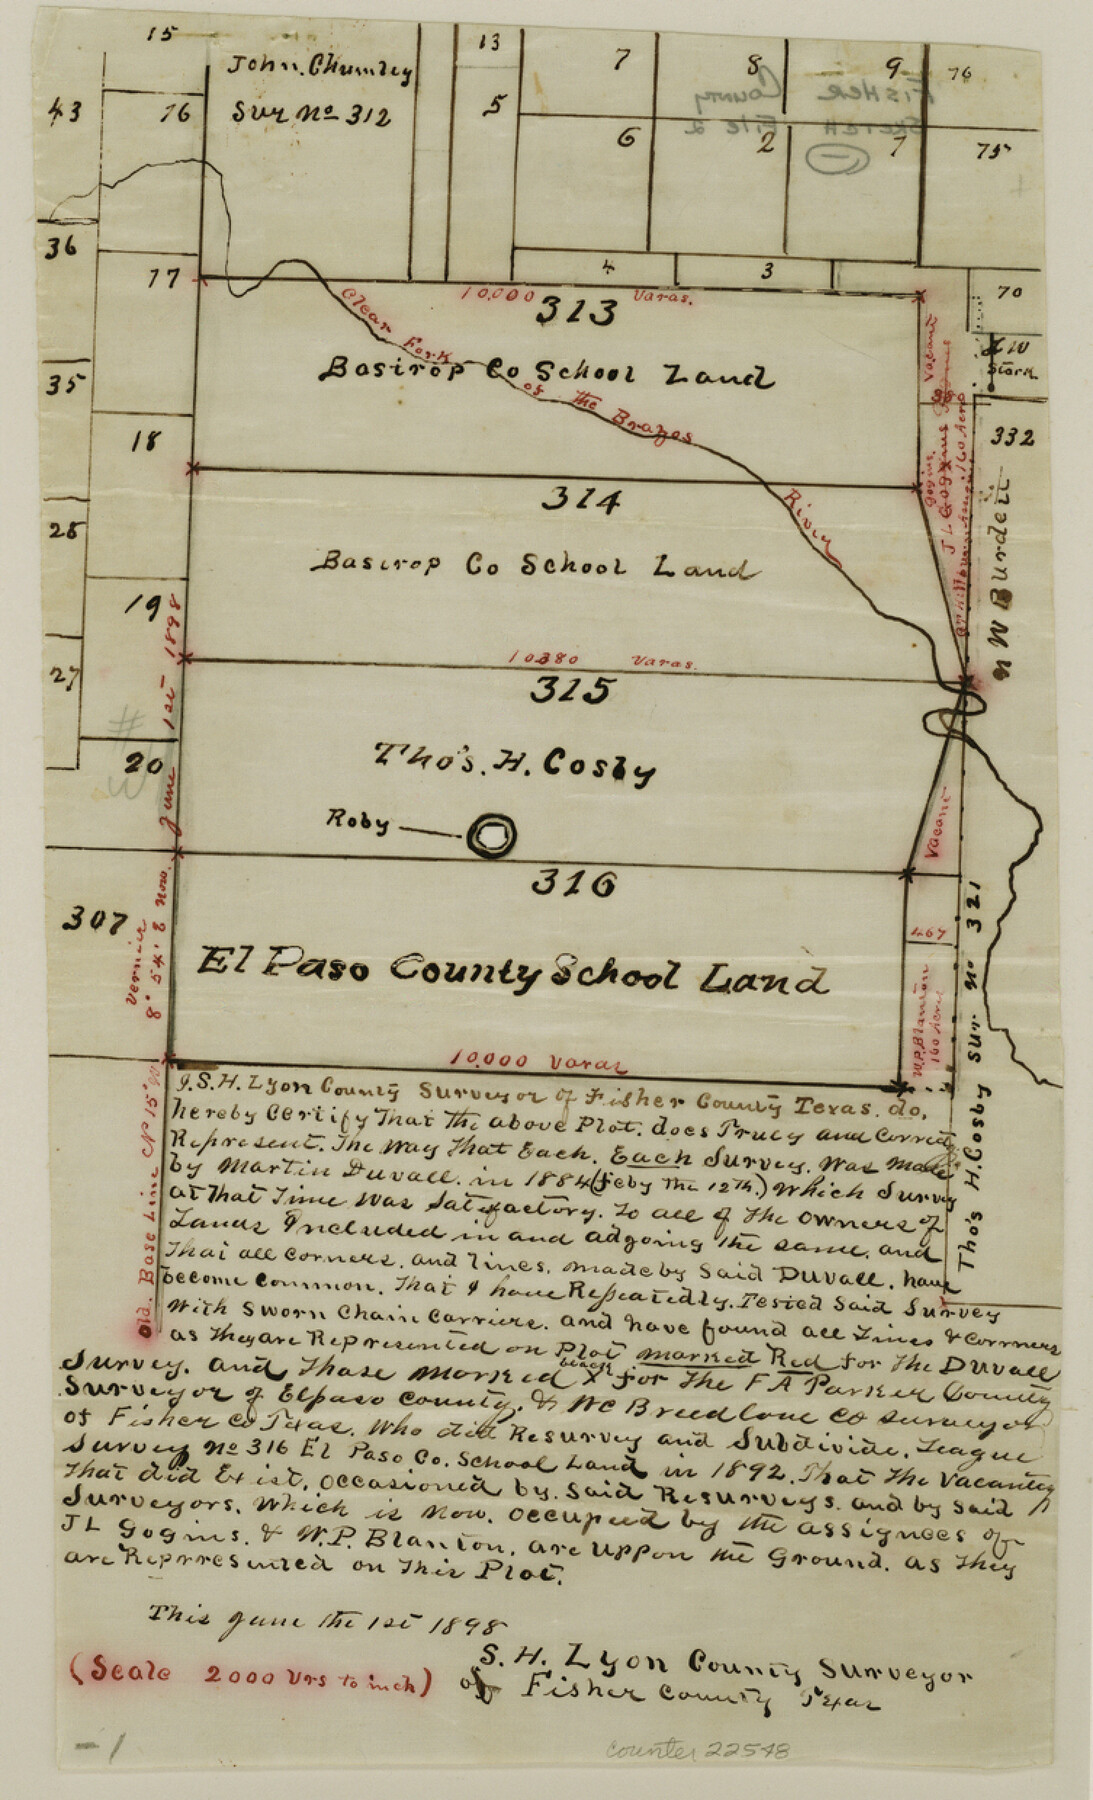 15
13
John. Chumley
7
8
9
76
FISHER County
43
16
Sur No 312
5
SKETCH File 2
6
2
1
75
36
17
4
3
70
10.000 Varas.
313
Clear Fork of the Brazos River
Vacant
35
Bastrop Co School Land
J W
Stark
18
332
314
Gogins.
J L Goggins
160 Acre
28
Bastrop Co School Land
N W Burdett
19
10380 Varas.
27
315
June 1st 1898
Tho's. H. Cosby
20
Roby
Vacant
316
307
Vernier
8° 54' E now.
467
El Paso County School Land
W.P. Blanton
160 Acres
Tho's H. Cosby Sur No 321
10.000 Varas
Old. Base Line N 15°
I. S. H. Lyon County Surveyor of Fisher County Texas. do,
hereby Certify That the above Plot. does Truey and Correctly
Represent. The way That Each. Each Survey. was made
by Martin Duvall. in 1884 (Feby the 12th.) which Survey
at That Time was Satefactory. To all of the owners of
Lands Included in and adgoing the same. and
That all corners. and lines. made by Said Duvall. have
become common. That I have Repeatedly. Tested Said Survey
With Sworn Chain Carriers. and have found all Lines & Corners
as They are Represented on Plot marked Red for The Duvall
Survey. and Those marked black X for The F A Parker County
Surveyor of Elpaso County. & WC Breedlove Co Surveyor
of Fisher Co Texas. Who did Resurvey and Subdivide. League
Survey No 316 El Paso Co. School Land in 1892. That The Vacantcy
That did Exist. occasioned by. Said Resurveys. and by Said
Surveyors. Which is now. occupied by the assignees of
J L Gogins. & W.P. Blanton. are uppon the Ground. as They
are Reprresented on This Plot.
This June the 1st 1898
S. H. Lyon County Surveyor
(Scale 2000 Vrs to inch)
of Fisher County Texas
-1
counter 22548